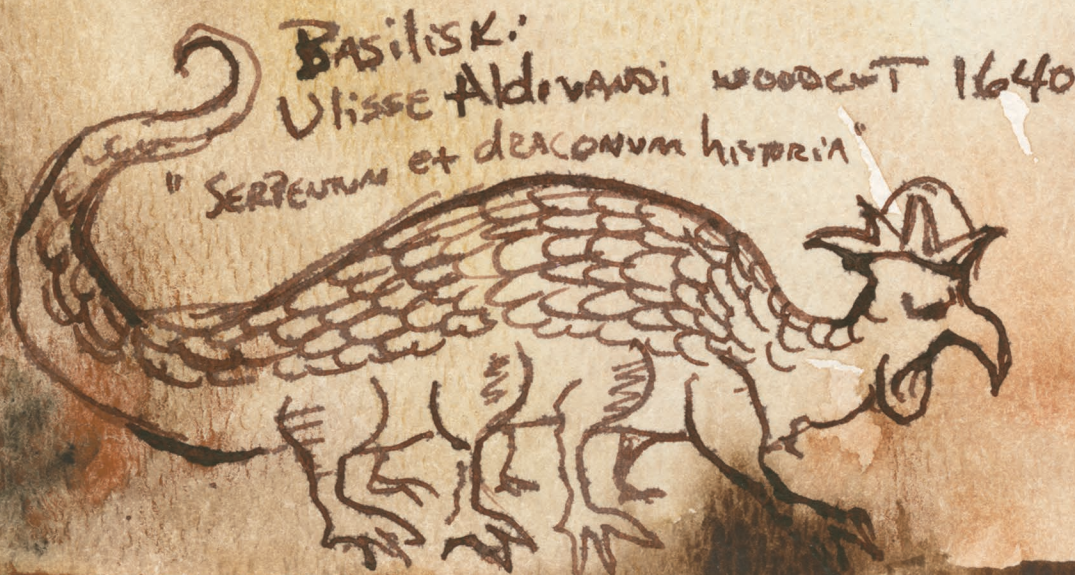 Basiliski
Ulisse Aldrovandi woodcut 1640
"Serpentum et draconum historia"